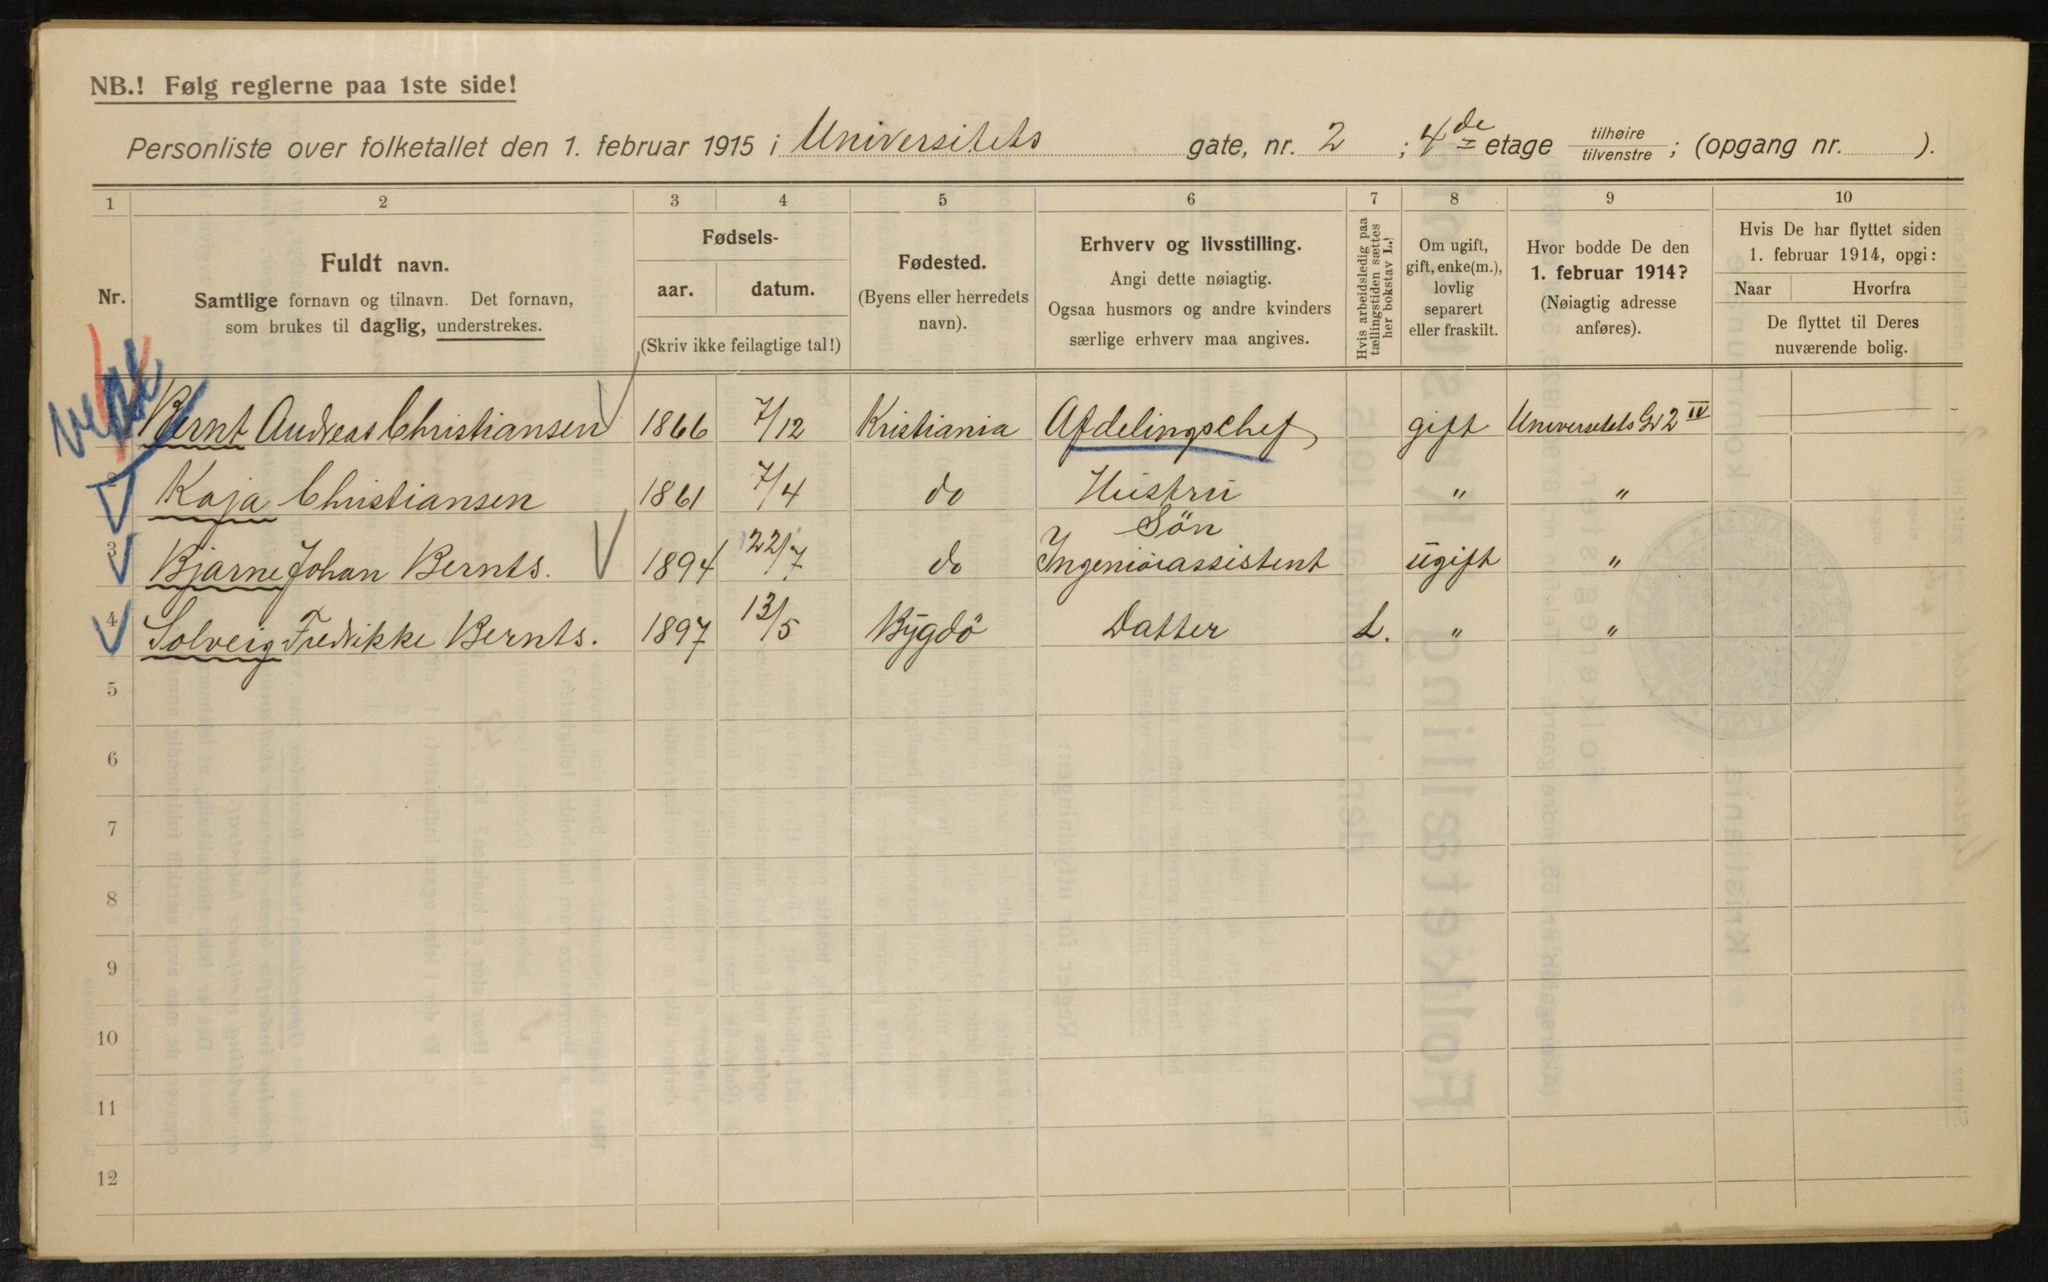 NB.! Følg reglerne paa 1ste side!
Personliste over folketallet den 1. februar 1915 i Universitets gate, nr. 2 ; 4de etage tilhøire/tilvenstre ; (opgang nr. ).
1 2 3 4 5 6 7 8 9 10
Nr.
Fuldt navn.
Samtlige fornavn og tilnavn. Det fornavn,
som brukes til daglig, understrekes.
Fødsels-
aar. datum.
(Skriv ikke feilagtige tal!)
Fødested.
(Byens eller herredets
navn).
Erhverv og livsstilling.
Angi dette nøiagtig.
Ogsaa husmors og andre kvinders
særlige erhverv maa angives.
Hvis arbeidsledig paa
tællingstiden sættes
her bokstav L.
Om ugift,
gift, enke(m.),
lovlig
separert
eller fraskilt.
Hvor bodde De den
1. februar 1914?
(Nøiagtig adresse
anføres).
Hvis De har flyttet siden
1. februar 1914, opgi:
Naar Hvorfra
De flyttet til Deres
nuværende bolig.
Bernt Andreas Christiansen 1866 7/12 Kristiania Afdelingschef gift Universitets Gd 2 IV
2 Kaja Christiansen 1861 7/4 do Hustru " "
3 Bjarne Johan Bernts. 1894 22/7 do Søn
Ingeniørassistent ugift "
4 Solveig Fredrikke Bernts. 1897 13/5 Bygdö Datter L. " "
5
6
7
8
9
10
11
12